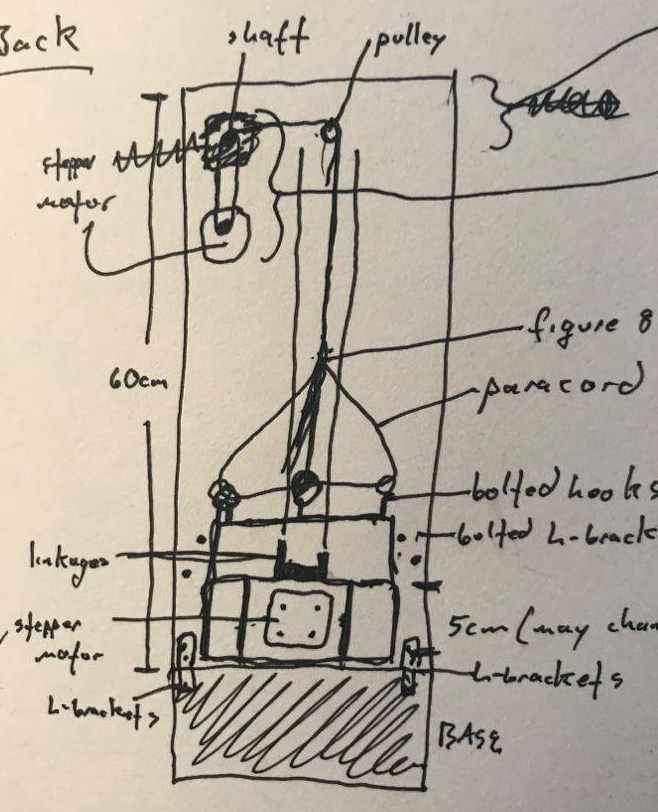 Back
shaft
pulley
stepper
motor
figure 8
paracord
60cm
bolted hooks
bolted L-brack
linkages
stepper
motor
5cm (may chan
L-brackets
L-brackets
BASE